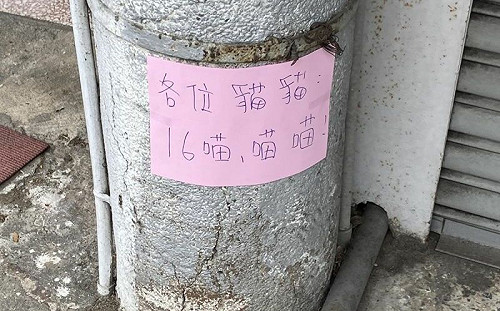 各位 貓貓：
16喵、喵喵！